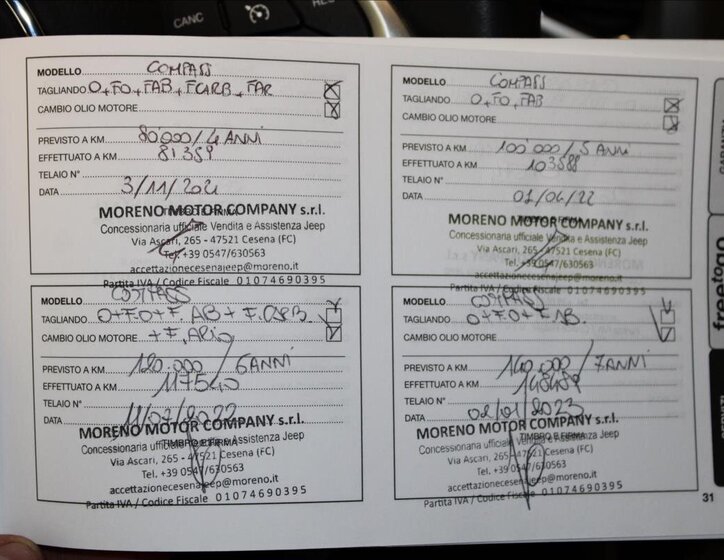 CANC
MODELLO COMPASS
TAGLIANDO O+FO+FAB+FCARB+FAR
CAMBIO OLIO MOTORE
PREVISTO A KM 80'000/4 ANNI
EFFETTUATO A KM 81359
TELAIO N°
DATA 3/11/2021
MORENO MOTOR COMPANY s.r.l.
TIMBRO E FIRMA
Concessionaria ufficiale Vendita e Assistenza Jeep
Via Ascari, 265 - 47521 Cesena (FC)
Tel. +39 0547/630563
accettazionecesenajeep@moreno.it
Partita IVA / Codice Fiscale 01074690395
MODELLO COMPASS
TAGLIANDO O+FO+FAB
CAMBIO OLIO MOTORE
PREVISTO A KM 100'000/5 ANNI
EFFETTUATO A KM 103588
TELAIO N°
DATA 01/04/22
MORENO MOTOR COMPANY s.r.l.
Concessionaria ufficiale Vendita e Assistenza Jeep
Via Ascari, 265 - 47521 Cesena (FC)
Tel. +39 0547/630563
accettazionecesenajeep@moreno.it
Partita IVA / Codice Fiscale 01074690395
MODELLO COMPASS
TAGLIANDO O+F.O+F.AB+
CAMBIO OLIO MOTORE
PREVISTO A KM 120.000/6ANNI
EFFETTUATO A KM 117540
TELAIO N°
DATA 11/07/2022
MORENO MOTOR COMPANY s.r.l.
TIMBRO E FIRMA
Concessionaria ufficiale Vendita e Assistenza Jeep
Via Ascari, 265 - 47521 Cesena (FC)
Tel. +39 0547/630563
accettazionecesenajeep@moreno.it
Partita IVA / Codice Fiscale 01074690395
MODELLO COMPASS
TAGLIANDO O+F.O+F.AB.
CAMBIO OLIO MOTORE
PREVISTO A KM 140.000/7ANNI
EFFETTUATO A KM
TELAIO N°
DATA 02/01/2023
MORENO MOTOR COMPANY s.r.l.
TIMBRO E FIRMA
Concessionaria ufficiale Vendita e Assistenza Jeep
Via Ascari, 265 - 47521 Cesena (FC)
Tel. +39 0547/630563
accettazionecesenajeep@moreno.it
Partita IVA / Codice Fiscale 01074690395
free to go
31